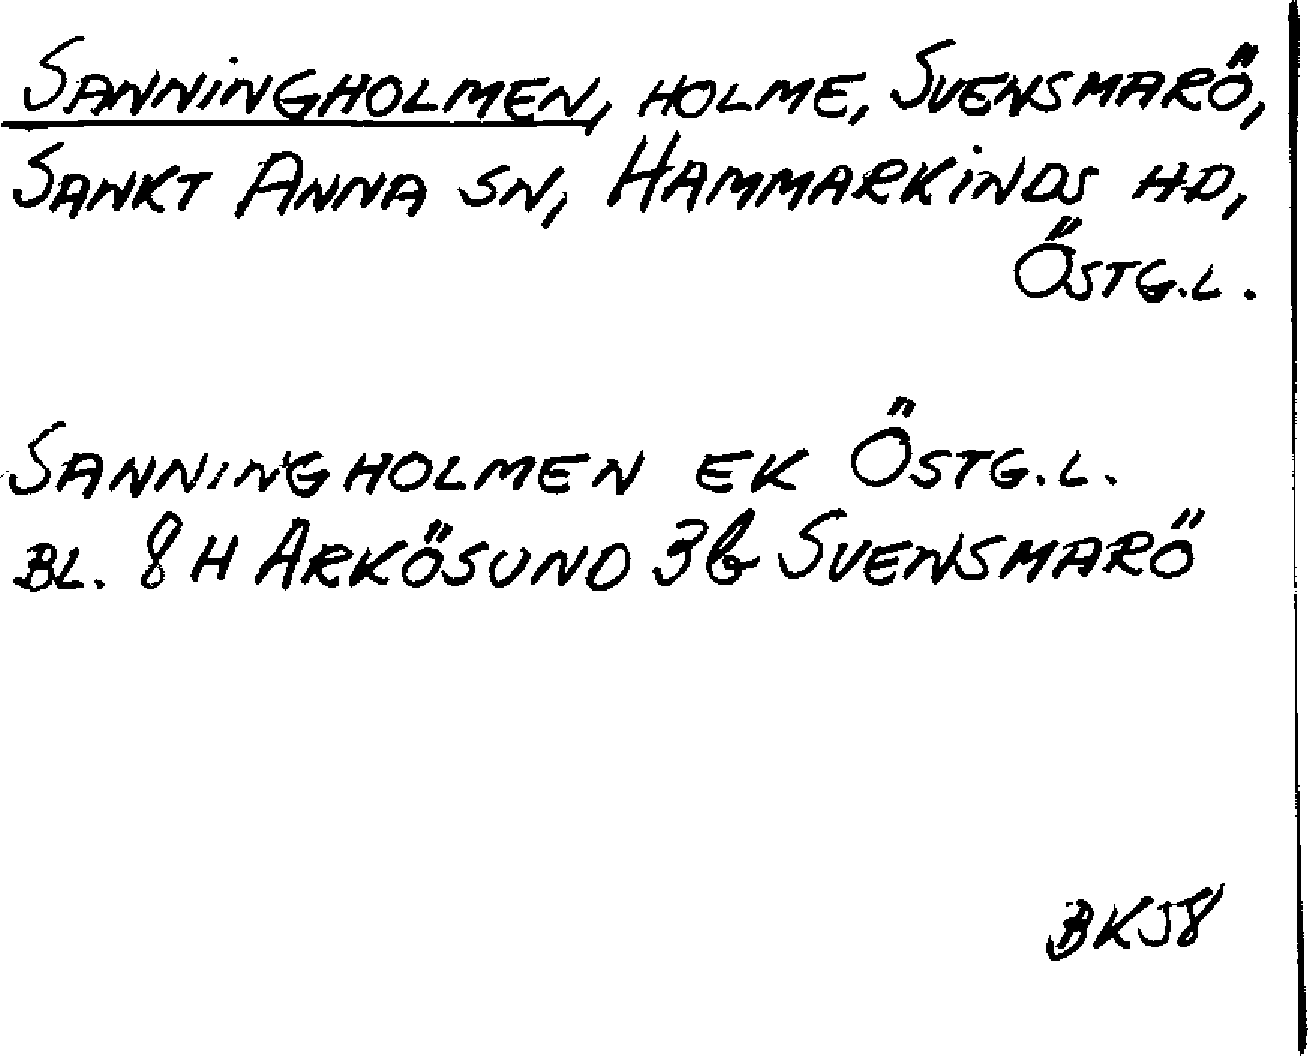 SANNINGHOLMEN, HOLME, SVENSMARÖ,
SANKT ANNA SN, HAMMARKINDS HD,
ÖSTG.L.
SANNINGHOLMEN EK ÖSTG.L.
BL. 8 H ARKÖSUND 3b SVENSMARÖ
BK58